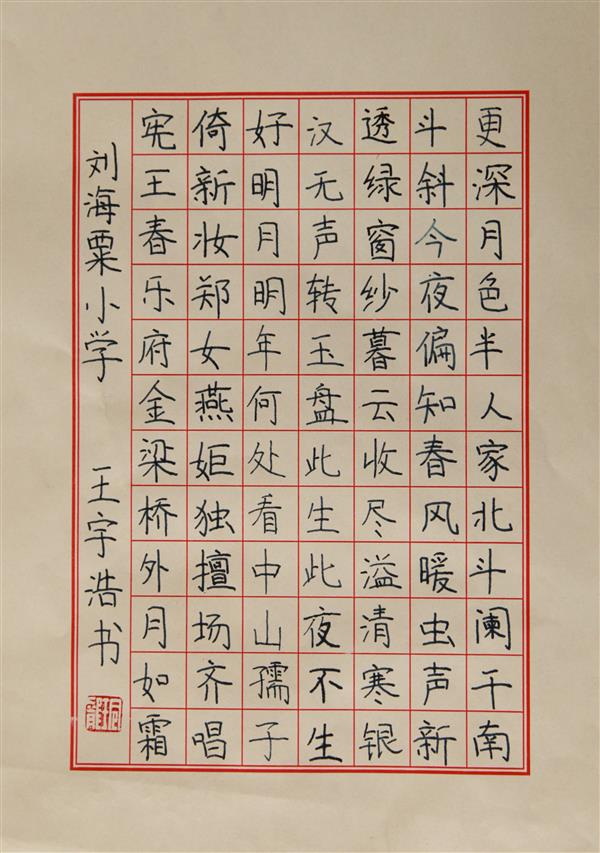 更深月色半人家北斗阑干南
斗斜今夜偏知春风暖虫声新
透绿窗纱暮云收尽溢清寒银
汉无声转玉盘此生此夜不生
好明月明年何处看中山孺子
倚新妆郑女燕姖独擅场齐唱
宪王春乐府金梁桥外月如霜
刘海粟小学 王宇浩书